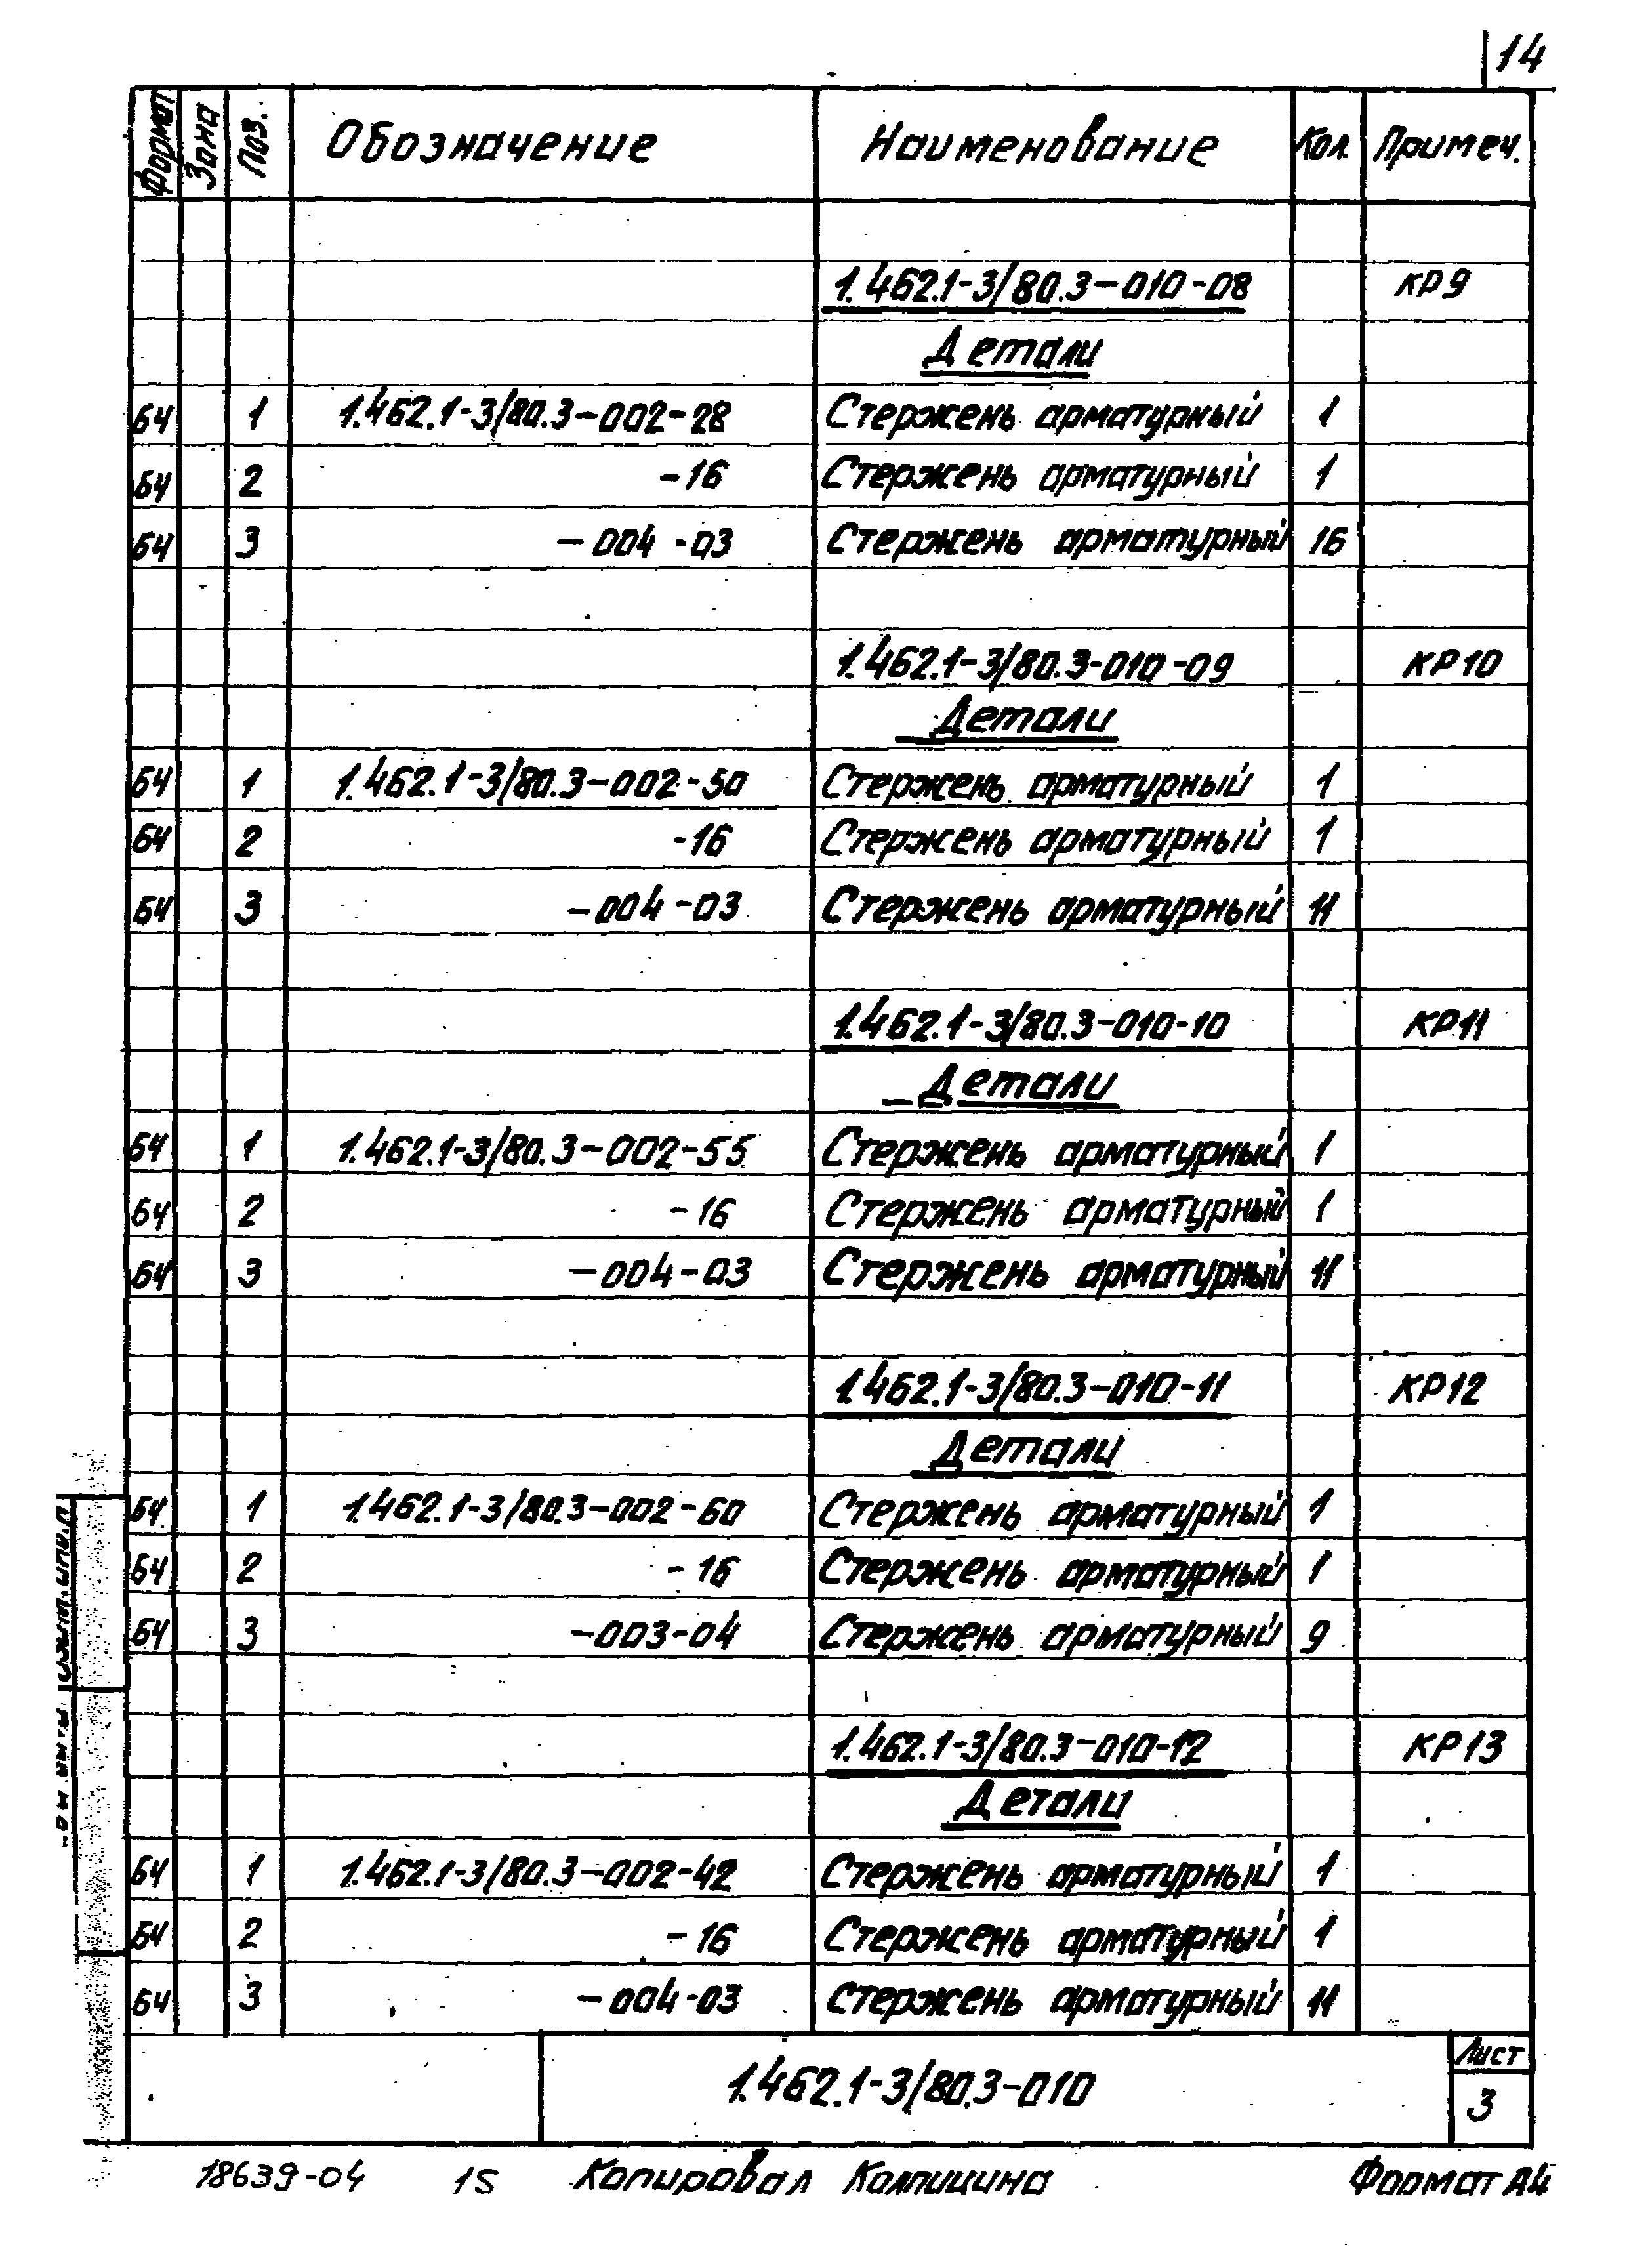 14
Формат Зона Поз. Обозначение Наименование Кол. Примеч.
1.462.1-3/80.3-010-08 КР9
Детали
БЧ 1 1.462.1-3/80.3-002-28 Стержень арматурный 1
БЧ 2 -16 Стержень арматурный 1
БЧ 3 -004-03 Стержень арматурный 16
1.462.1-3/80.3-010-09 КР10
Детали
БЧ 1 1.462.1-3/80.3-002-50 Стержень арматурный 1
БЧ 2 -16 Стержень арматурный 1
БЧ 3 -004-03 Стержень арматурный 11
1.462.1-3/80.3-010-10 КР11
Детали
БЧ 1 1.462.1-3/80.3-002-55 Стержень арматурный 1
БЧ 2 -16 Стержень арматурный 1
БЧ 3 -004-03 Стержень арматурный 11
1.462.1-3/80.3-010-11 КР12
Детали
БЧ 1 1.462.1-3/80.3-002-60 Стержень арматурный 1
БЧ 2 -16 Стержень арматурный 1
БЧ 3 -003-04 Стержень арматурный 9
1.462.1-3/80.3-010-12 КР13
Детали
БЧ 1 1.462.1-3/80.3-002-42 Стержень арматурный 1
БЧ 2 -16 Стержень арматурный 1
БЧ 3 -004-03 Стержень арматурный 11
1.462.1-3/80.3-010
Лист
3
18639-04 15 Копировал Колпицина Формат А4